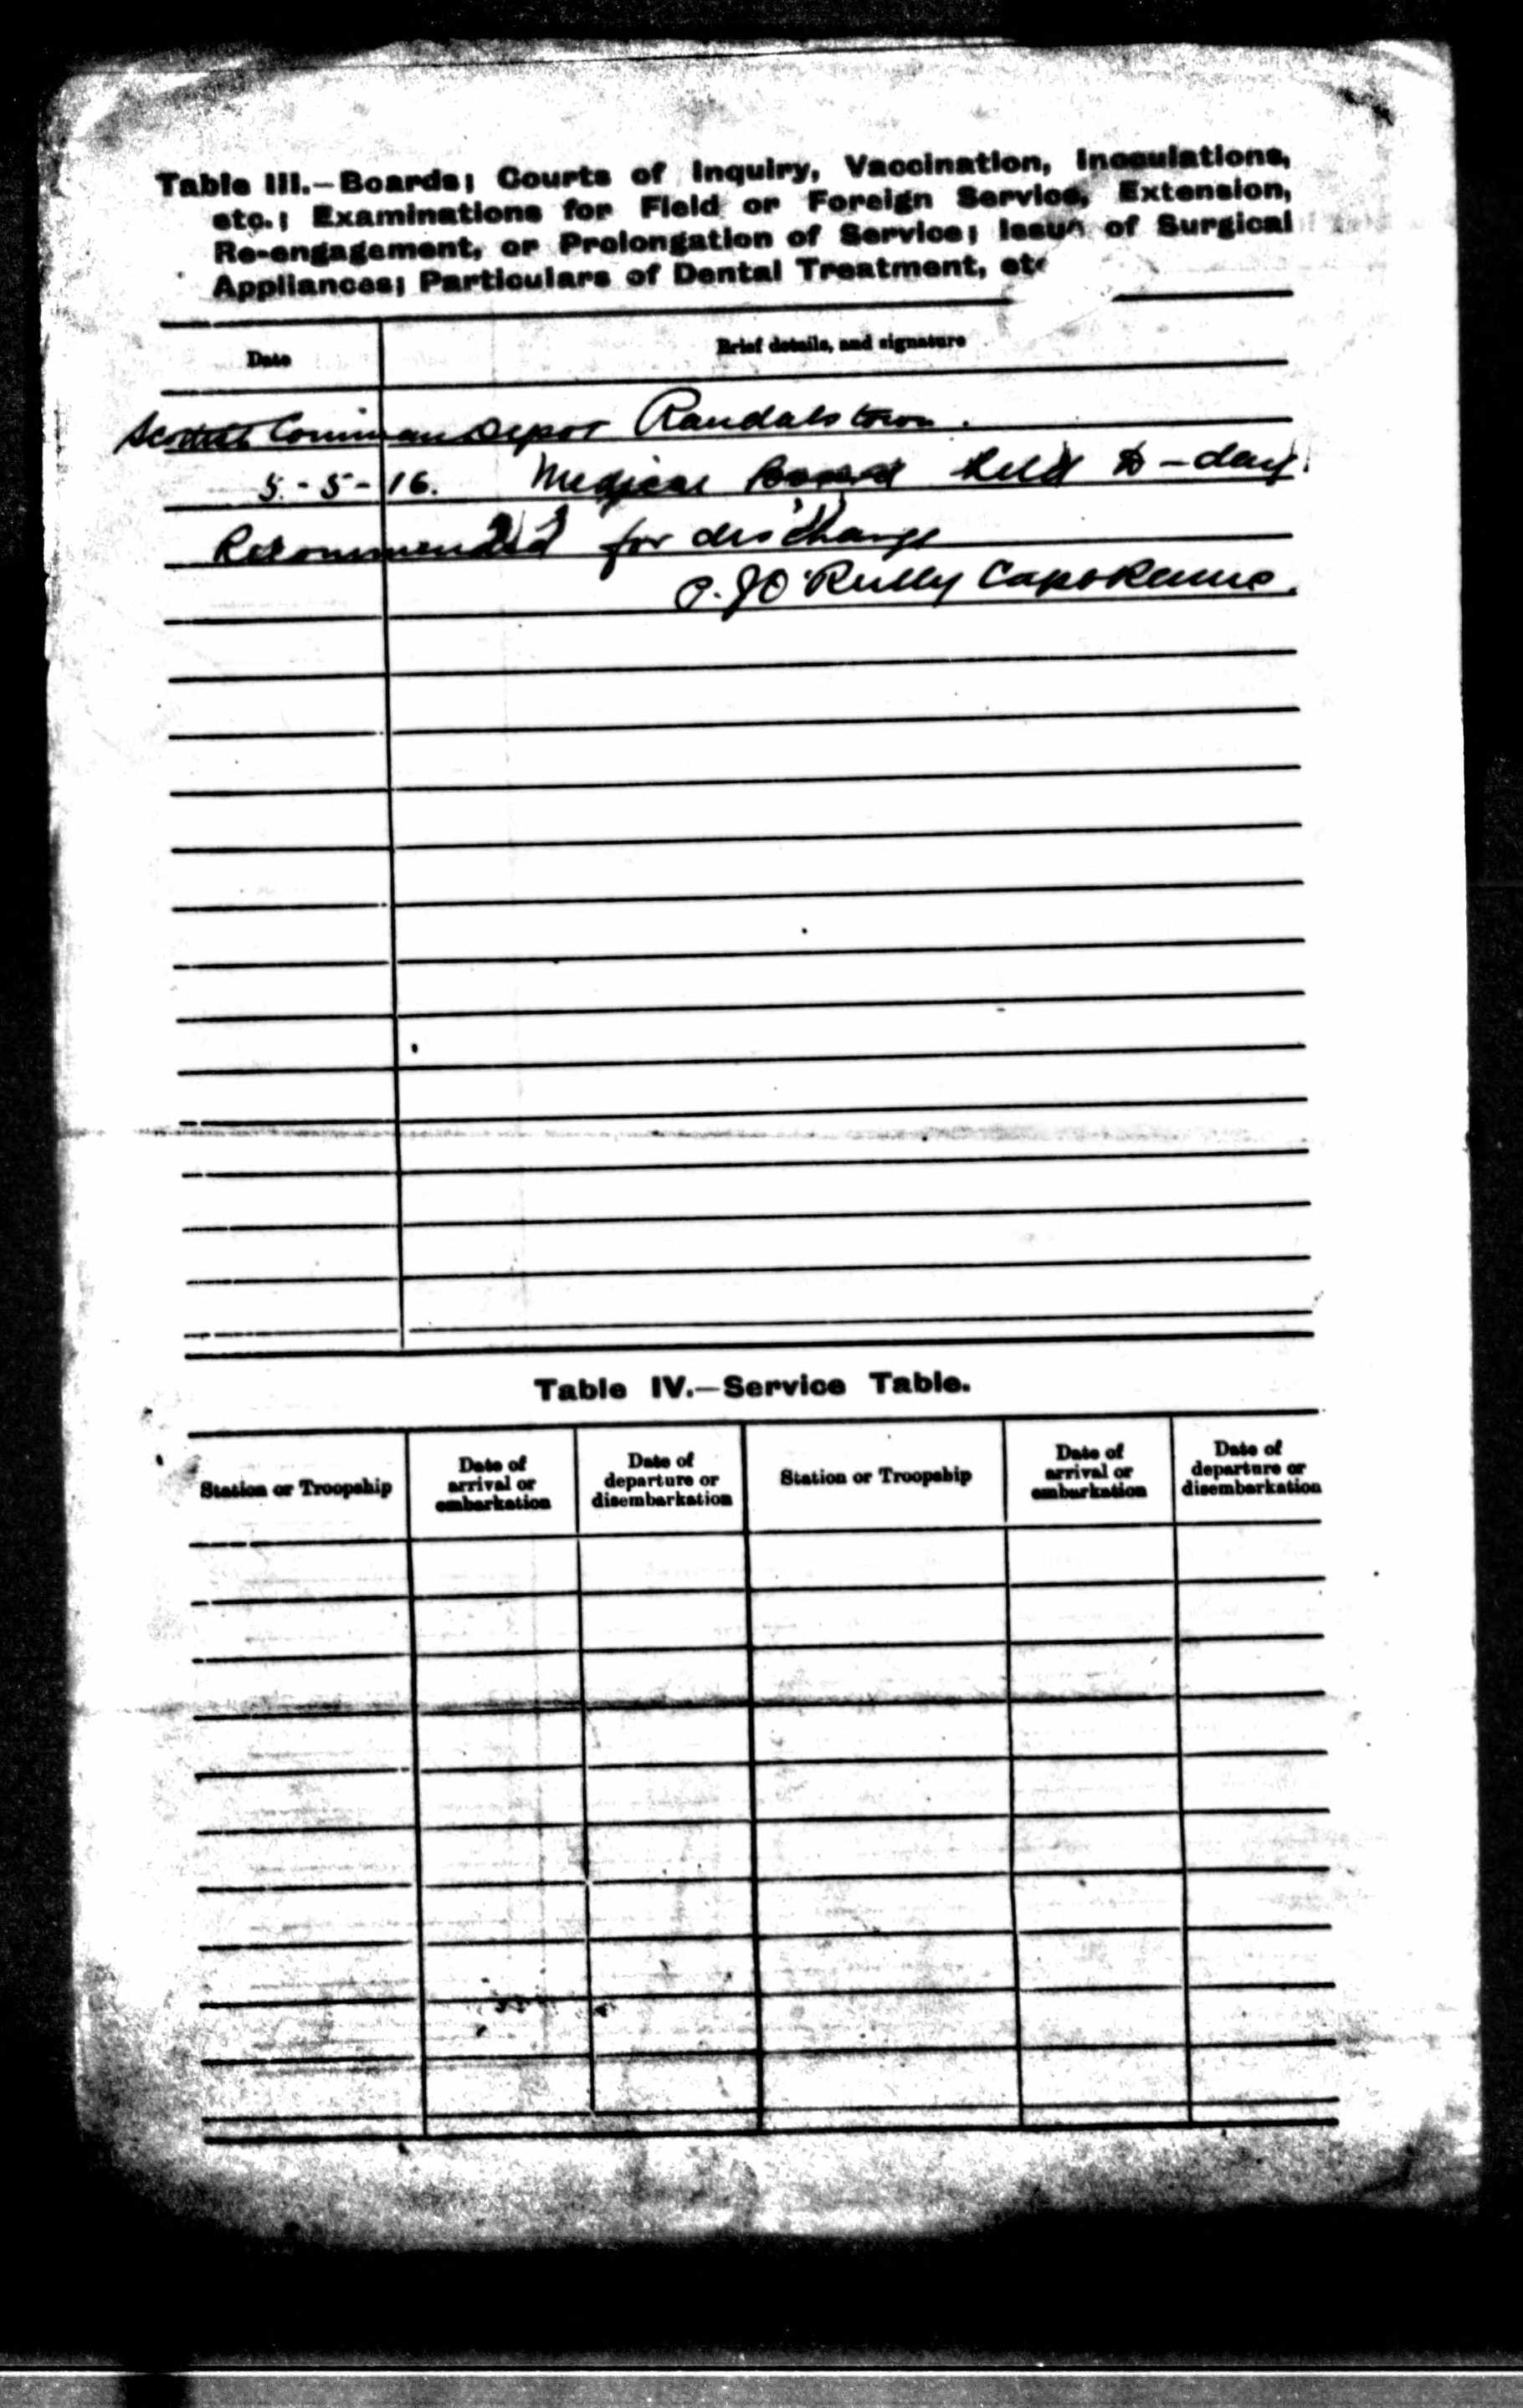 Table III.—Boards; Courts of Inquiry, Vaccination, Inoculations,
etc.; Examinations for Field or Foreign Service, Extension,
Re-engagement, or Prolongation of Service; Issue of Surgical
Appliances; Particulars of Dental Treatment, etc
Date
Brief details, and signature
Scottish Comman Depot Randalstown.
5-5-16. Medical Board held to-day.
Recommended for discharge
P. J O'Reilly Capt RAMC.
Table IV.—Service Table.
Station or Troopship
Date of
arrival or
embarkation
Date of
departure or
disembarkation
Station or Troopship
Date of
arrival or
embarkation
Date of
departure or
disembarkation